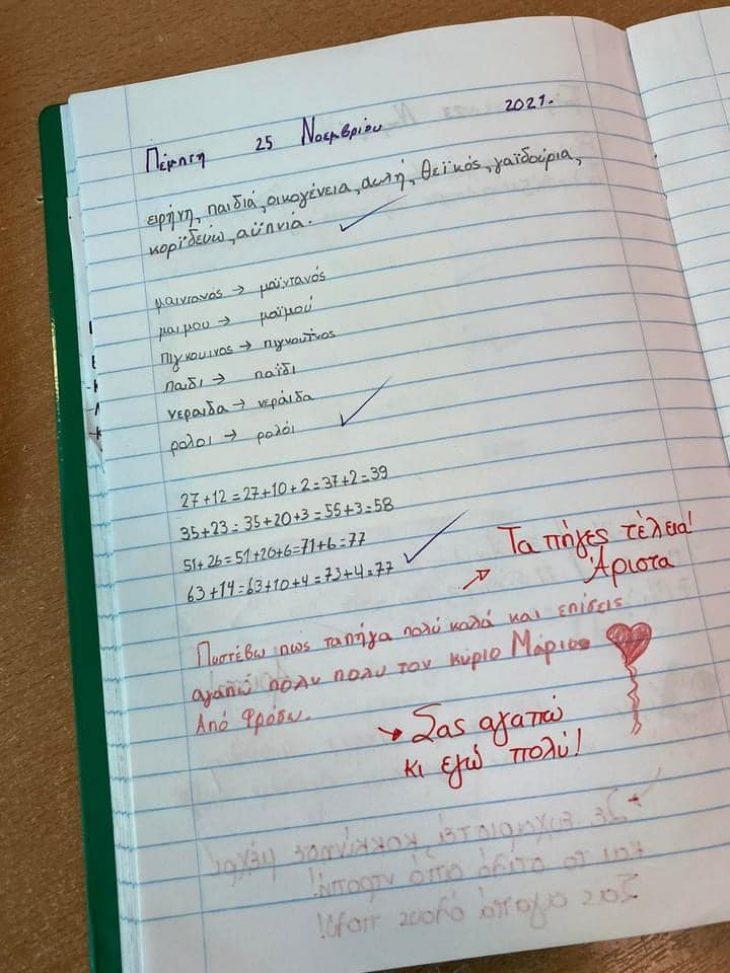 Πέμπτη 25 Νοεμβρίου 2021.
ειρήνη, παιδιά, οικογένεια, αυλή, θεϊκός, γαϊδούρια,
κοροϊδεύω, αϋπνία.
μαιντανός → μαϊντανός
μαιμου → μαϊμού
πιγκουινος → πιγκουΐνος
παιδι → παϊδι
νεραιδα → νεράιδα
ρολοι → ρολόι
27+12=27+10+2=37+2=39
35+23=35+20+3=55+3=58
51+26=51+20+6=71+6=77
63+14=63+10+4=73+4=77
Τα πήγες τέλεια!
Άριστα
Πιστέβω πως τα πήγα πολύ καλά και επίσεις
αγαπώ πολυ πολυ τον κύριο Μάριο
Από Φρόσω.
Σας αγαπώ
κι εγώ πολύ!
Σε ευχαριστεί κοκκίνησε μέχρι
και το στυλό από ντροπή!
Σας αγαπά όλους πολύ!